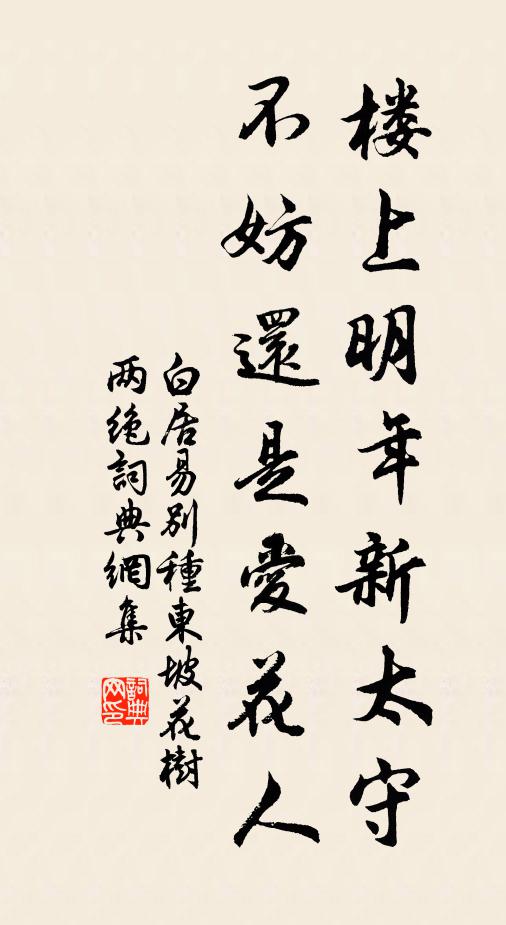 楼上明年新太守
不妨還是愛花人
白居易别種東坡花樹
两绝詞典網集
詞典网印